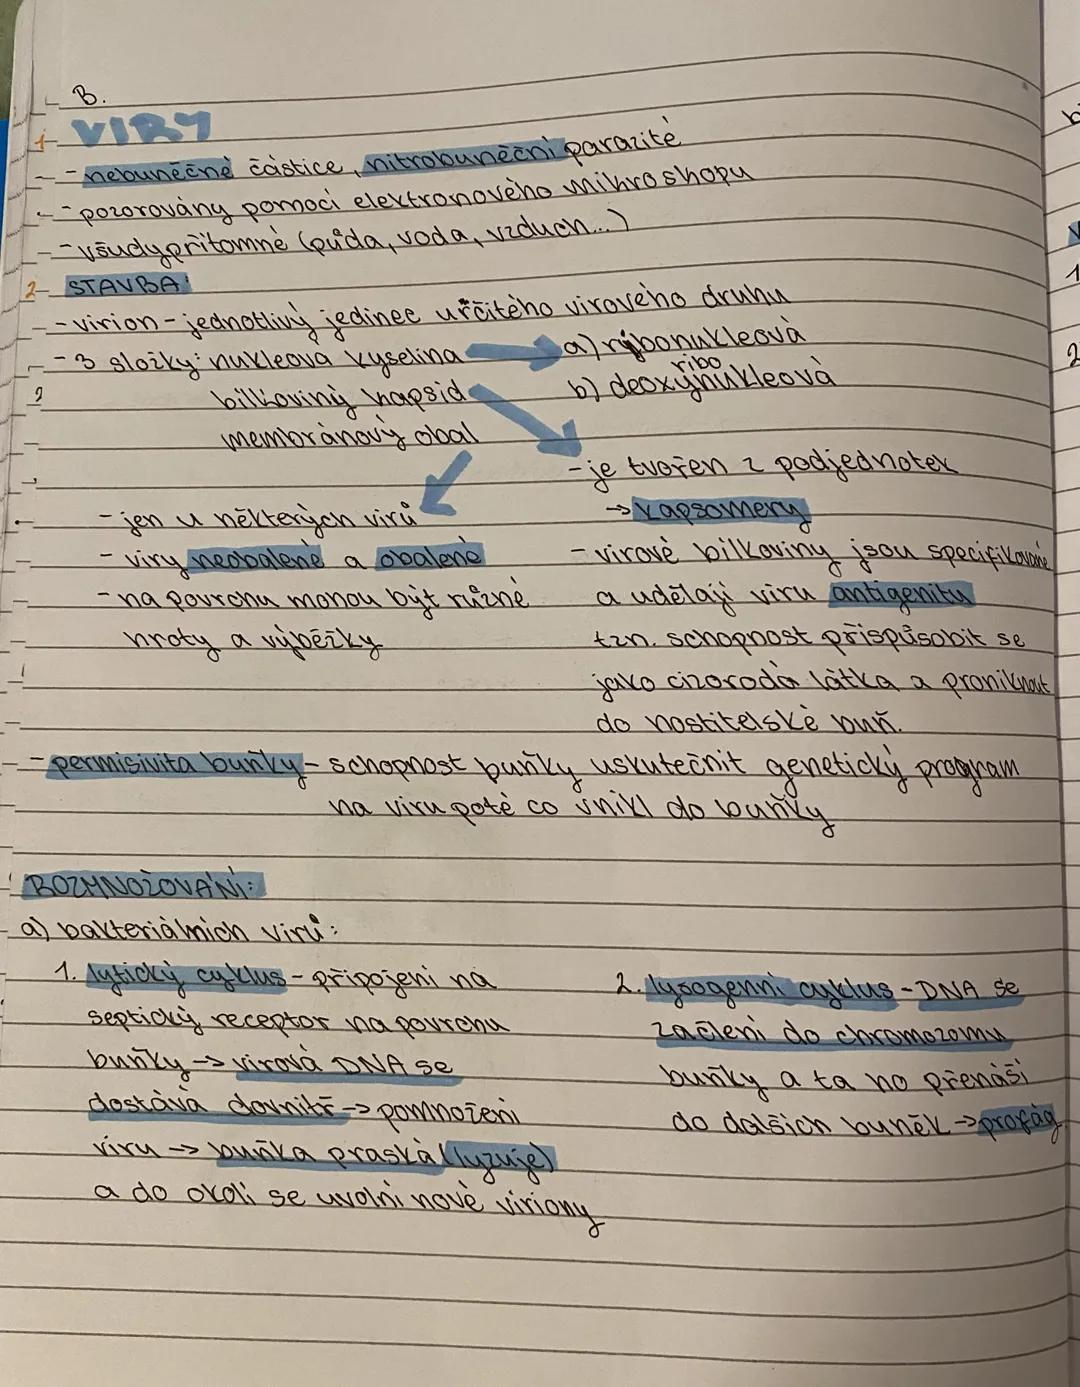 B.
1 VIRY
- nebuněčné částice, nitrobuněční parazité
- pozorovány pomocí elektronového mikroskopu
- všudypřítomné (půda, voda, vzduch...)
2 STAVBA:
- virion - jednotlivý jedinec určitého virového druhu
- 3 složky: nukleová kyselina → a) ribonukleová
b) deoxyribonukleová
bílkoviný kapsid
membránový obal
- je tvořen z podjednotek
→ kapsomery
- virové bílkoviny jsou specifikované
a udělají viru antigenitu
tzn. schopnost přispůsobit se
jako cizorodá látka a proniknout
do hostitelské buň.
- jen u některých virů
- viry neobalené a obalené
- na povrchu mohou být různé
hroty a výběžky
- permisivita buňky - schopnost buňky uskutečnit genetický program
na viru poté co vnikl do buňky
ROZMNOŽOVÁNÍ:
a) bakteriálních virů:
1. lytický cyklus - připojení na
septický receptor na povrchu
buňky → virová DNA se
dostává dovnitř → pomnožení
viru → buňka praská (lyzuje)
a do okolí se uvolní nové viriony
2. lysogenní cyklus - DNA se
začlení do chromozomu
buňky a ta ho přenáší
do dalších buněk → profág